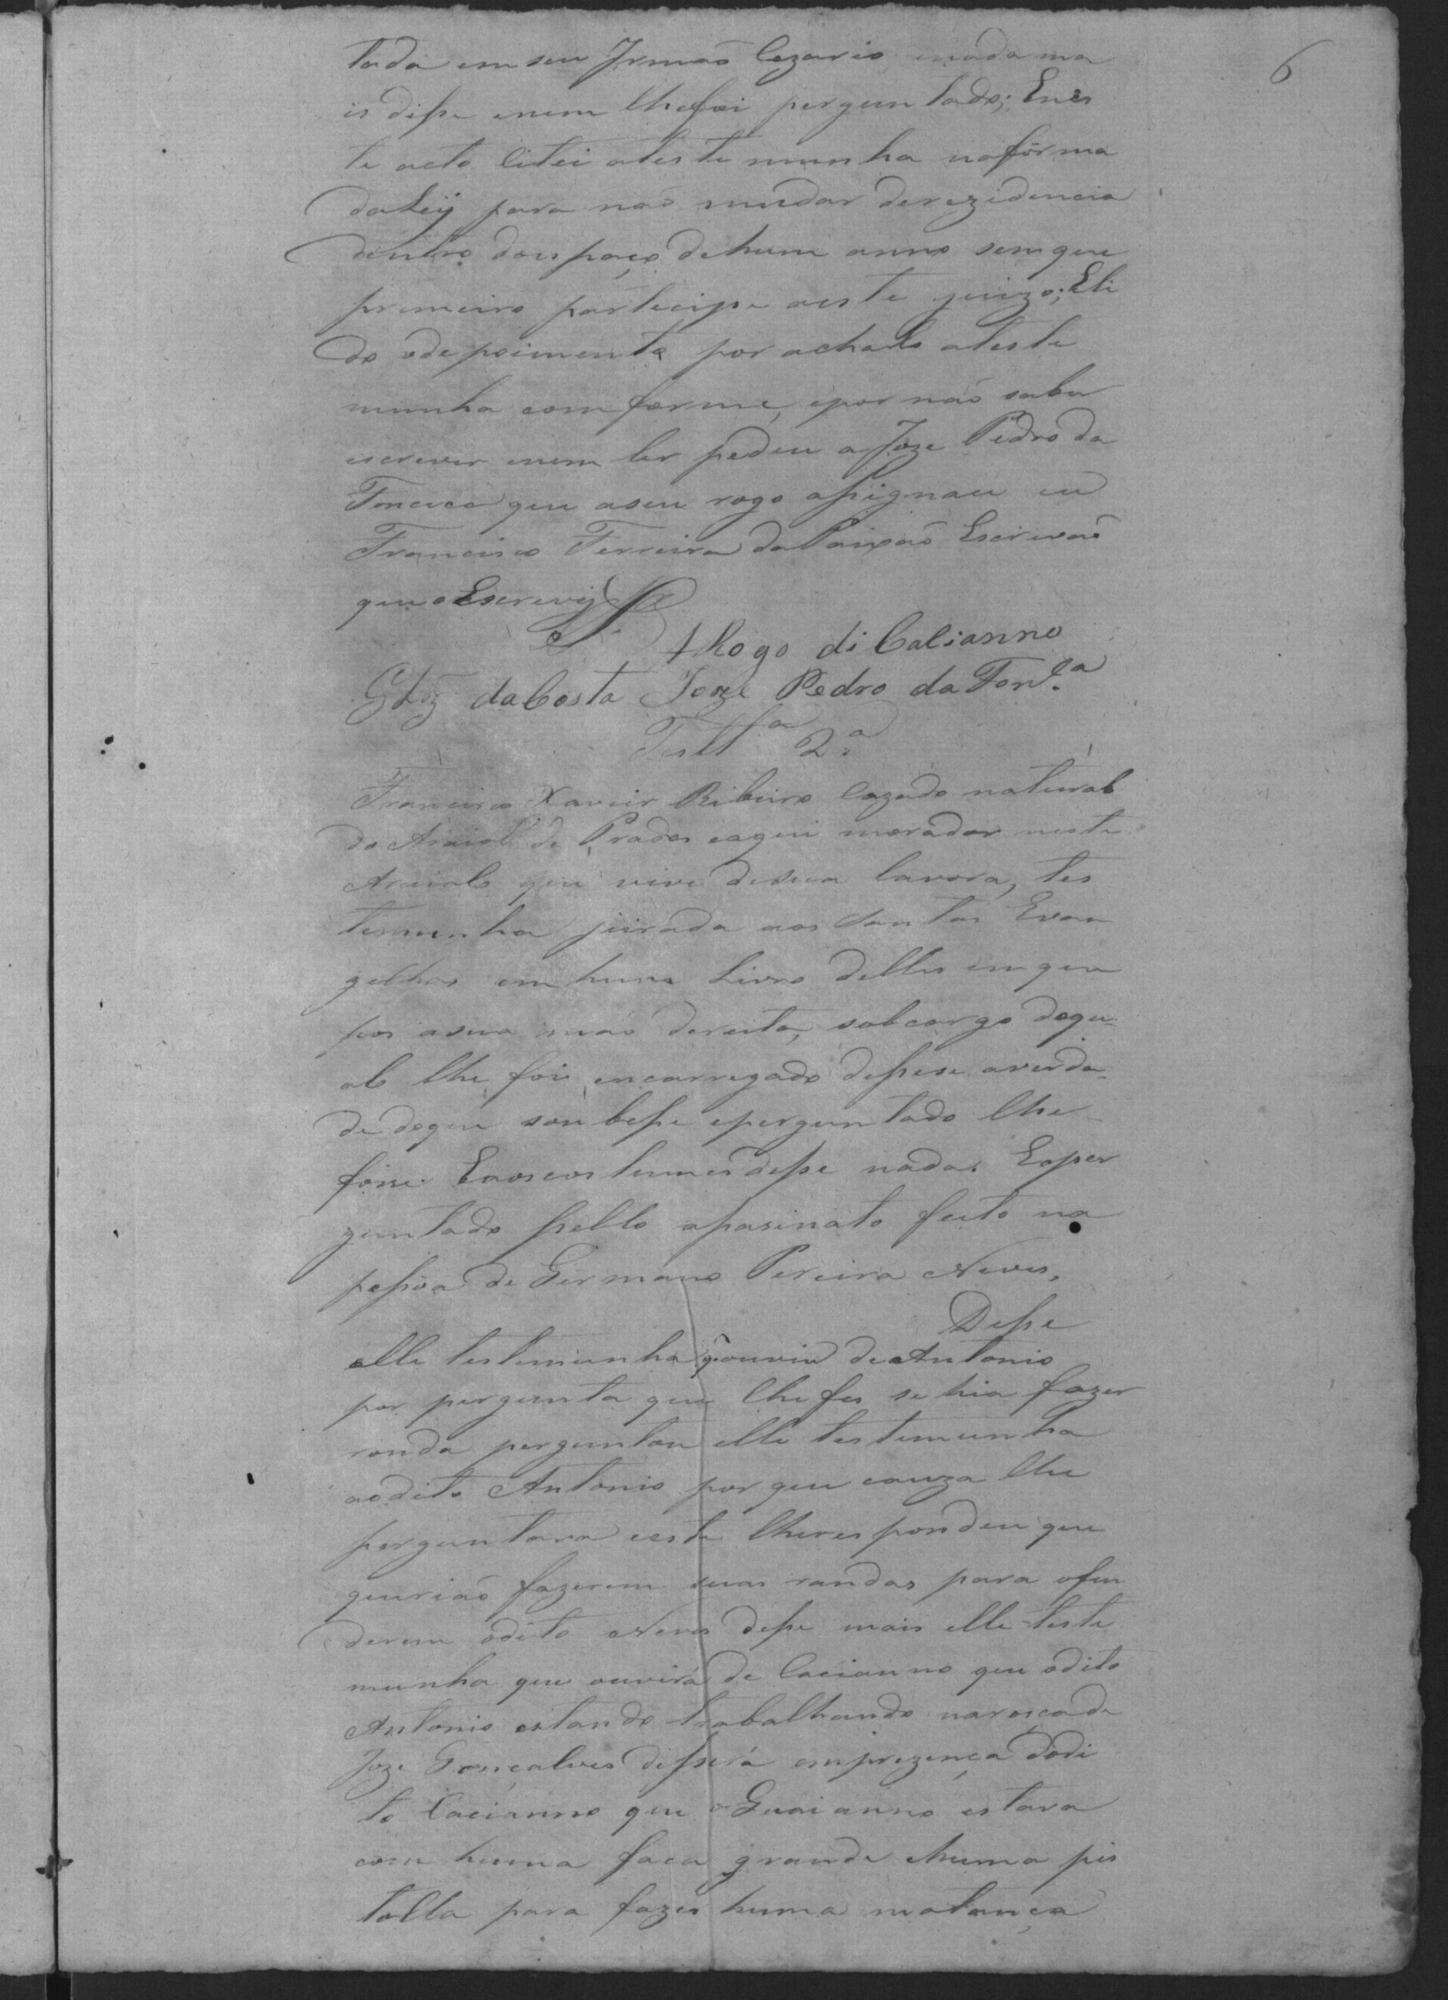 6
tada em seu Irmaõ Cezario enada ma
is dipe enem lhefoi perguntado; Enes
te acto Citei atestemunha nafórma
daLeij para naõ mudar derezidencia
dentro douspaço dehum anno semque
primeiro participe aeste juizo; Eli
do odepoimento por achalo ateste
munha comforme, epor naõ saber
escrever enem ler pedeu a Joze Pedro da
Fonceca que aseu rogo apignou eu
Francisco Ferreira daPaixaõ Escrivaõ
que oEscrevij
ARogo di Casianno
daCosta Joze Pedro da Fon.ca
Testa 2.a
Francisco Xavier Ribeiro Cazado natural
do Araial de Prados eaqui morador neste
Araialo que vive desua lavora, tes
temunha jurada aos Santos Evan
gelhos em hum Livro delles em que
pos asua maõ dereita, sobcargo doqu
al lhe foi encarregado dipese averda
de doque soubepe eperguntado lhe
fose. Eaoscostumes dipe nada. Eaper
guntado pello apasinato feito na
pepoa de Girmano Pereira Neves,
Dipe
elle testemunha q ouvio deAntonio
por pergunta que lhefes sehia fazer
ronda perguntou elle testemunha
aodito Antonio por que cauza lhe
perguntava eeste lherespondeu que
queriaõ fazerem suas rondas para ofen
derem odito Neves dipe mais elle teste
munha que ouvira de Cacianno que odito
Antonio estando trabalhando naroçade
Joze Gonçalves dipera emprezença dodi
to Cacianno que o Guaianno estava
com huma faca grande ehuma pis
tolla para fazer huma matança